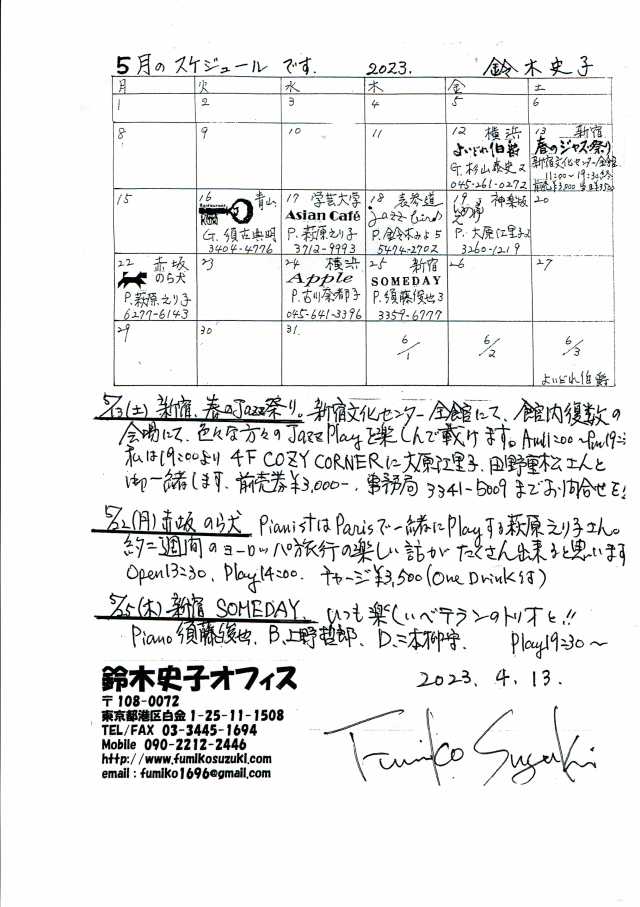 5月のスケジュール です. 2023. 鈴木史子
月 火 水 木 金 土
1 2 3 4 5 6
8 9 10 11 12 横浜 13 新宿
よいどれ伯爵 春のジャズ祭り
G. 杉山泰史 新宿文化センター全館
045-261-0272 11:00〜19:30
前売¥3,000 当日¥3,500
15 16 青山 17 学芸大学 18 表参道 19 神楽坂 20
Asian Café jazz bird もりのいえ
G. 須古典明 P. 萩原えり子 P. 鈴木みよ5 P. 大原江里子
3404-4776 3712-9993 5474-2702 3260-1219
22 赤坂 23 24 横浜 25 新宿 26 27
のら犬 Apple SOMEDAY
P. 萩原えり子 P. 古川奈都子 P. 須藤俊也3
6277-6143 045-641-3396 3359-6777
29 30 31 6/1 6/2 6/3
よいどれ伯爵
5/13(土) 新宿、春のJazz祭り。新宿文化センター全館にて、館内復数の
会場にて、色々な方々のJazz Playを楽しんで戴けます。Am11:00〜Pm19:
私は19:00より 4F COZY CORNERに大原江里子、田野重松さんと
御一緒します。前売券¥3,000-、事務局 3341-5009 までお問合せを
5/22(月) 赤坂 のら犬 PianistはParisで一緒にPlayする萩原えり子さん。
約二週間のヨーロッパ旅行の楽しい話がたくさん出来ると思います
Open13:30, Play14:00. チャージ¥3,500 (One Drink付)
5/25(木) 新宿 SOMEDAY. いつも楽しいベテランのトリオと!!
Piano 須藤俊也、B.上野哲郎、D.二本柳守. Play19:30〜
鈴木史子オフィス
〒108-0072
東京都港区白金1-25-11-1508
TEL/FAX 03-3445-1694
Mobile 090-2212-2446
http://www.fumikosuzuki.com
email : fumiko1696@gmail.com
2023. 4. 13.
Fumiko Suzuki